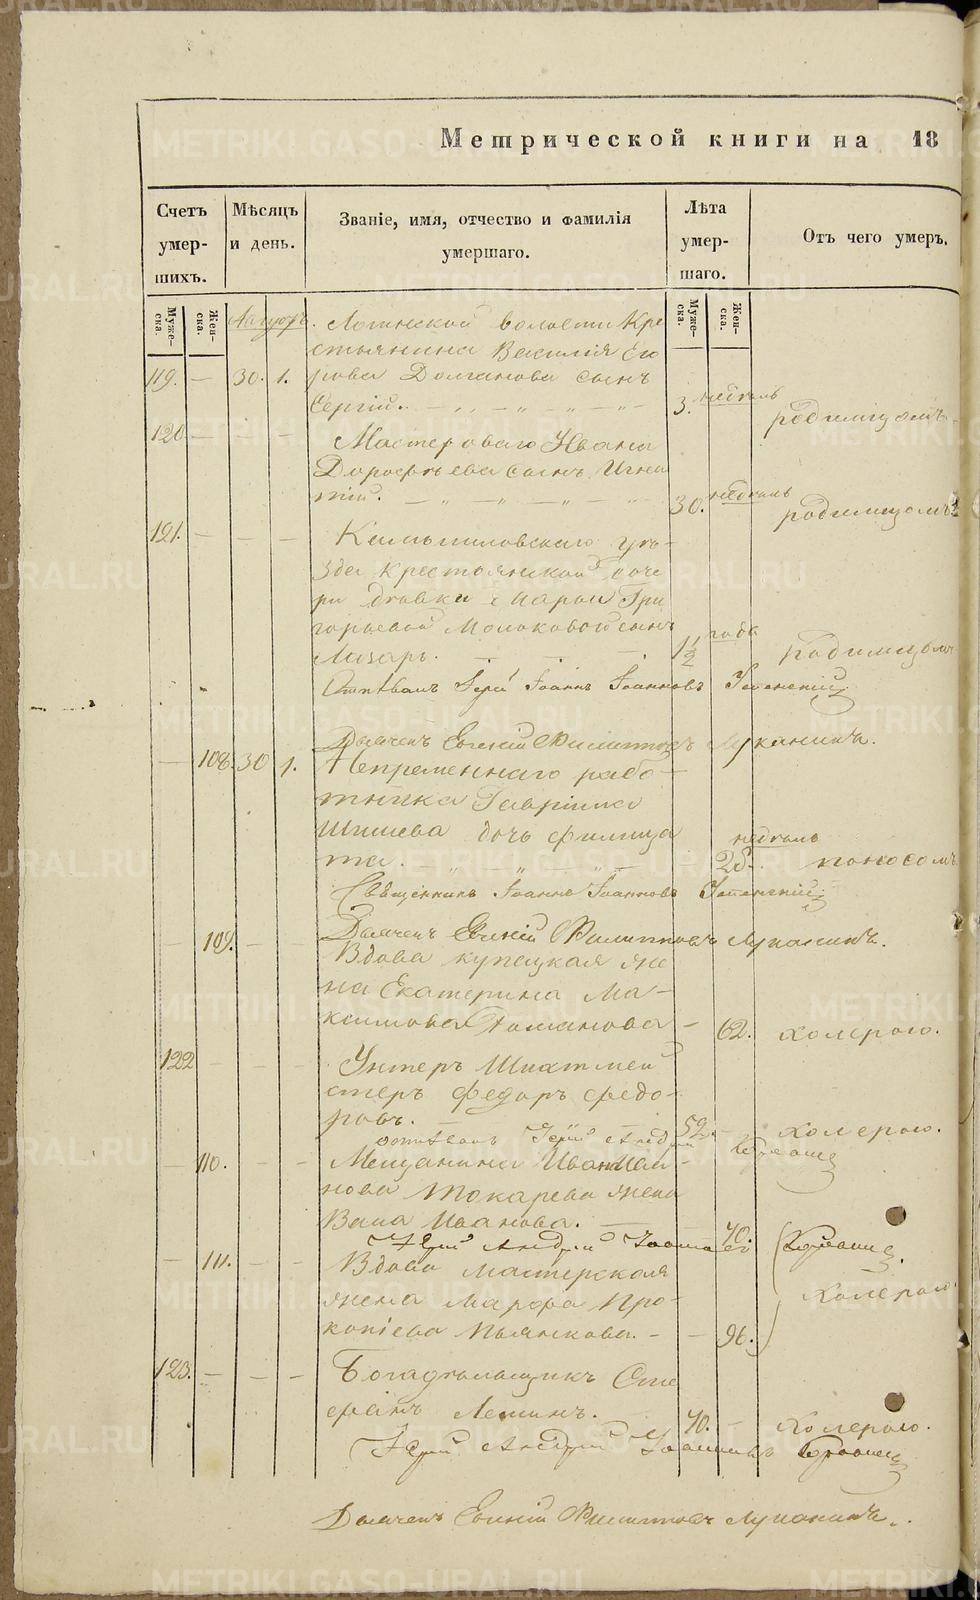 Метрической книги на 18
Счетъ умер- шихъ.
Мѣсяцъ и день.
Званіе, имя, отчество и фамилія умершаго.
Лѣта умер- шаго.
Отъ чего умеръ.
Муже- ска. Жен- ска. Муже- ска. Жен- ска.
Августъ. Логинской волости Кре
стьянина Василія Его
119. — 30. 1. рова Долганова сынъ
Сергій. 3. недѣль родимцомъ
120 — — — Мастероваго Ивана
Дорофѣева сынъ Игна
тій. 30. недѣль родимцомъ
121. — — — Камышловскаго уѣ-
зда крестьянской доче
ри дѣвки Марьи Гри
горьевой Молоковой сынъ
Лазарь. 1 1/2 года родимцом
Отпѣвалъ Іерей Іоаннъ Іоанновъ Успенскій
Дьячекъ Евгеній Филипповъ Луканинъ.
— 108. 30 1. Непременнаго рабо-
тника Гавріила
Шишева дочь Филица
та. 28. недѣль поносомъ
Священникъ Іоаннъ Іоанновъ Успенскій
Дьячекъ Евгеній Филипповъ Луканинъ.
— 109. — — Вдова купецкая же
на Екатерина Ма-
ксимова Романова — 62. холерою.
122 — — — Унтеръ Шихтмей
стеръ Федоръ Федо-
ровъ. 52. — холерою.
Іерей Андрей
— 110. — — Мещанина Ивана
нова Токарева жена
Иванова. — 40.
Іерей Андрей
— 111. — — Вдова мастерская
жена Марфа Про-
копіева Пьянкова. — — 96. Холерою
123. — — — Богадѣльщикъ Сте
фанъ Летинъ. 70. — Холерою.
Іерей Андрей Іоанновъ
Дьячекъ Евгеній Филипповъ Луканинъ.
METRIKI.GASO-URAL.RU